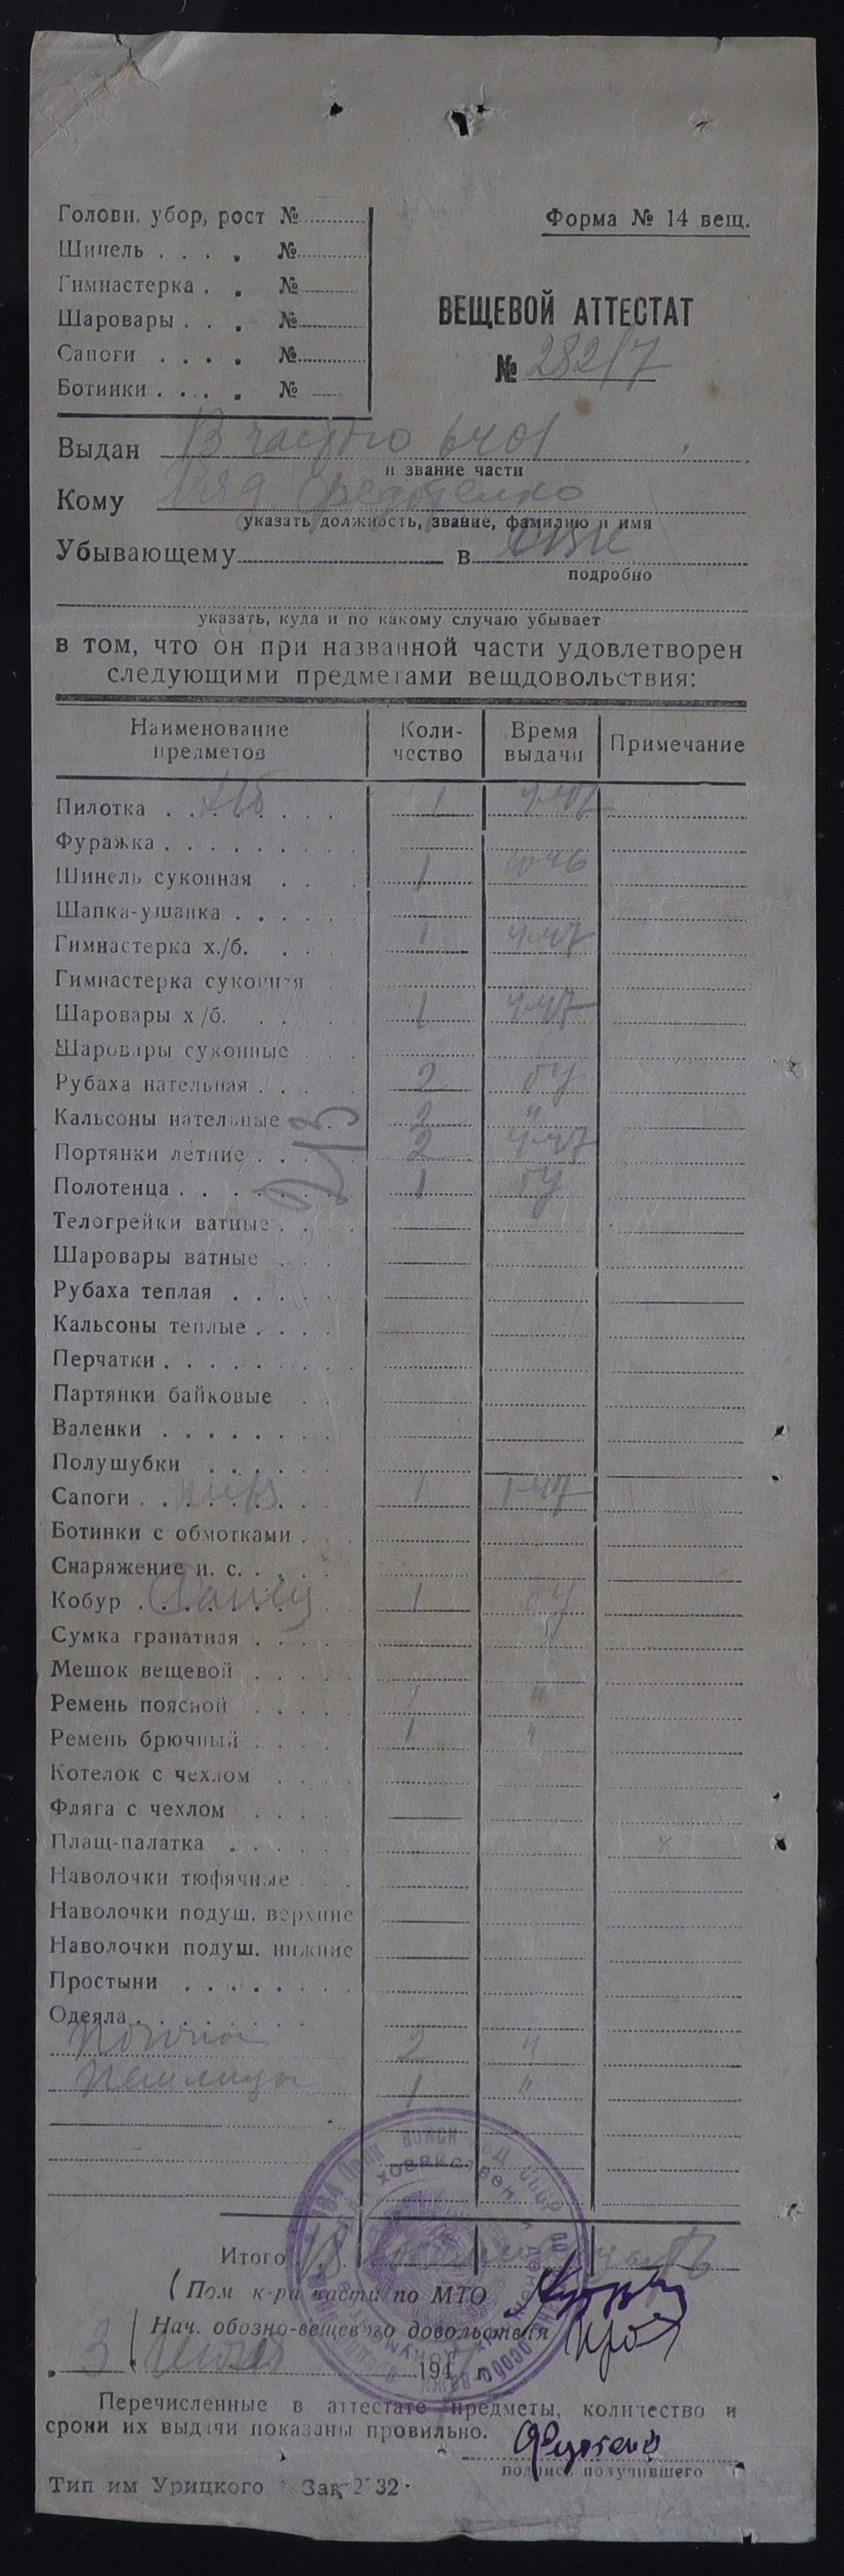 Головн. убор, рост №
Шинель . . . „ №
Гимнастерка . „ №
Шаровары . . „ №
Сапоги . . . . „ №
Ботинки . . . „ №
Форма № 14 вещ.
ВЕЩЕВОЙ АТТЕСТАТ
№ 282/7
Выдан В частью 6401
и звание части
Кому
указать должность, звание, фамилию и имя
Убывающему в
подробно
указать, куда и по какому случаю убывает
в том, что он при названной части удовлетворен
следующими предметами вещдовольствия:
Наименование предметов Коли-чество Время выдачи Примечание
Пилотка х/б 1 4-47
Фуражка
Шинель суконная 1
Шапка-ушанка
Гимнастерка х./б. 1 4-47
Гимнастерка суконная
Шаровары х/б. 1 4-47
Шаровары суконные
Рубаха нательная 2 бу
Кальсоны нательные 2 "
Портянки летние 2 4-47
Полотенца 1 бу
Телогрейки ватные
Шаровары ватные
Рубаха теплая
Кальсоны теплые
Перчатки
Партянки байковые
Валенки
Полушубки
Сапоги 1 1-47
Ботинки с обмотками
Снаряжение н. с.
Кобур Ранец 1 бу
Сумка гранатная
Мешок вещевой
Ремень поясной 1 "
Ремень брючный 1 "
Котелок с чехлом
Фляга с чехлом
Плащ-палатка
Наволочки тюфячные
Наволочки подуш. верхние
Наволочки подуш. нижние
Простыни
Одеяла
Погоны 2 "
Петлицы 1 "
Итого 18
Пом к-ра части по МТО
Нач. обозно-вещевого довольствия
3 194 г.
Перечисленные в аттестате предметы, количество и
сроки их выдачи показаны провильно.
подпись получившего
Тип им Урицкого Зак 2132